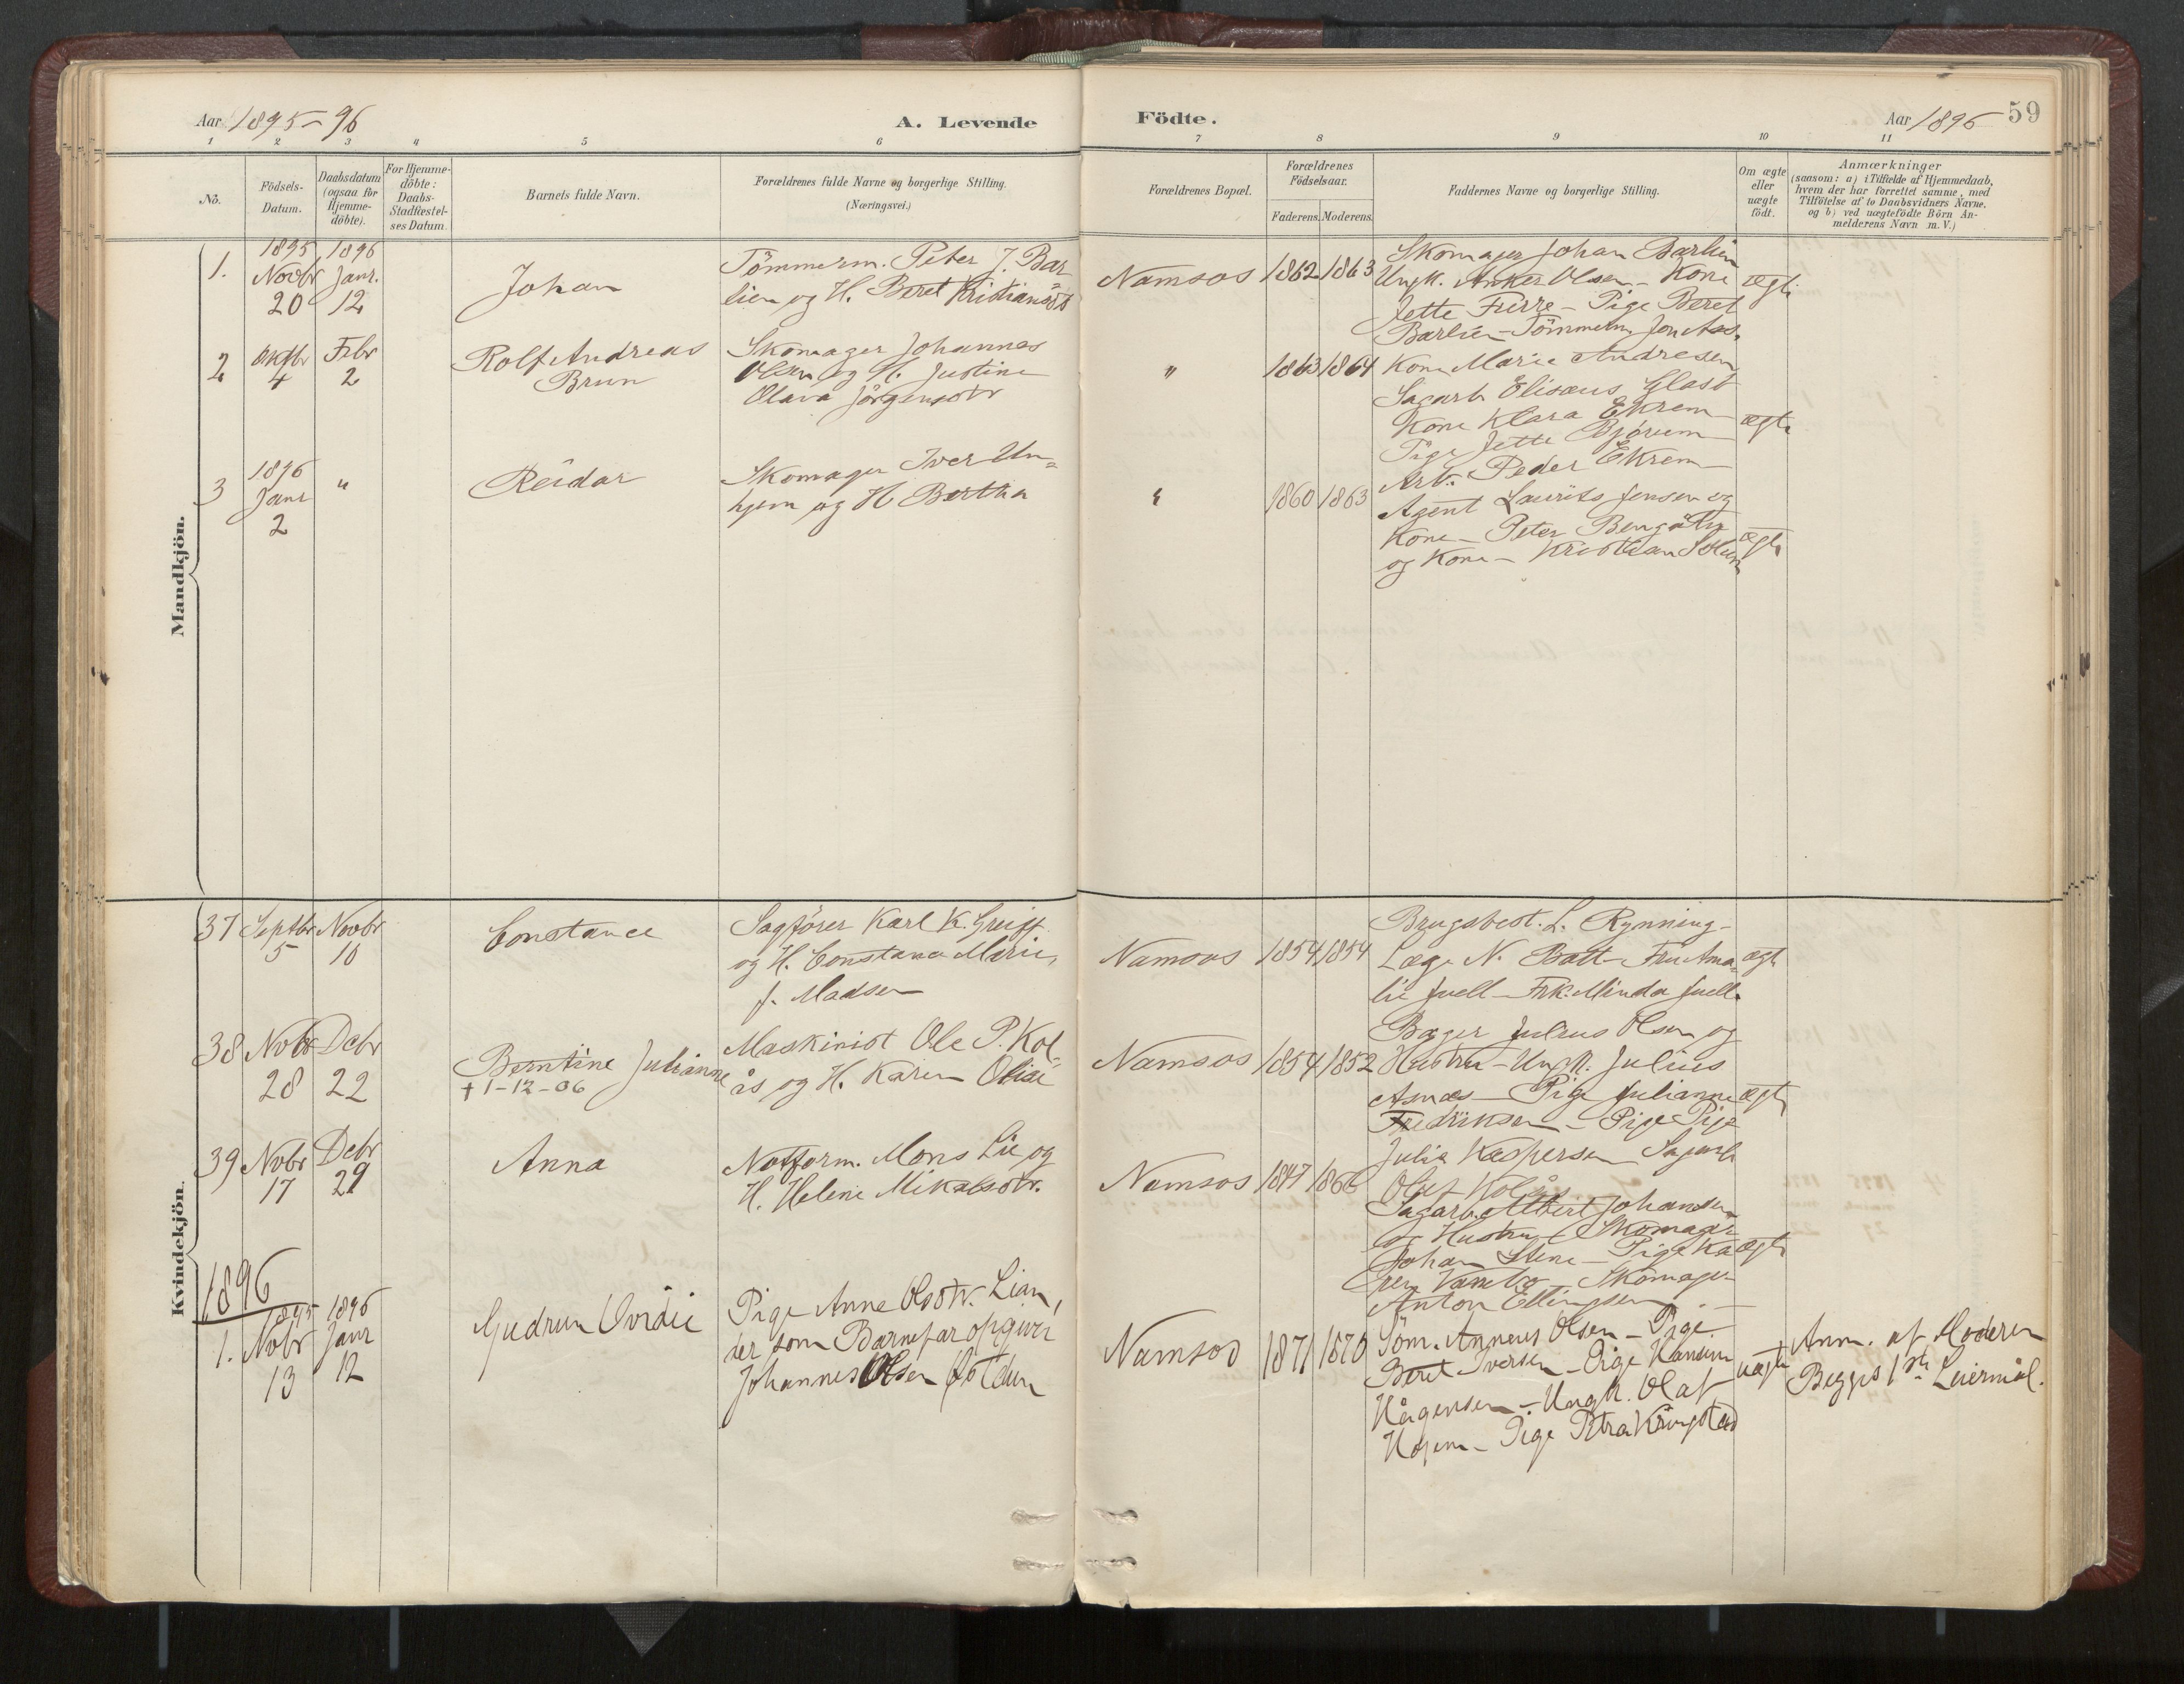 Aar 1895-96
A. Levende
Födte.
Aar 1896
59
1 2 3 4 5 6 7 8 9 10 11
No.
Födsels-
Datum.
Daabsdatum
(ogsaa for
Hjemme-
döbte).
For Hjemme-
döbte:
Daabs-
Stadfæstel-
ses Datum.
Barnets fulde Navn.
Forældrenes fulde Navne og borgerlige Stilling.
(Næringsvei.)
Forældrenes Bopæl.
Forældrenes
Födselsaar.
Faderens. Moderens.
Faddernes Navne og borgerlige Stilling.
Om ægte
eller
uægte
födt.
Anmærkninger
(saasom: a) i Tilfælde af Hjemmedaab,
hvem der har forrettet samme, med
Tilföielse af to Daabsvidners Navne,
og b) ved uægtefödte Börn An-
melderens Navn m. V.)
Mandkjön.
1.
1895
Novbr
20
1896
Janr.
12
Johan
Tömmerm. Peter J. Bar
lien og H. Beret Kristiansdtr
Namsos
1862
1863
Skomager Johan Barlien
Ungk. Anker Olsen - Kone
Jette - Pige Beret
Barlien - Tömmerm. Jon
ægte
2
Oktbr
4
Febr
2
Rolf Andreas
Brun
Skomager Johannes
Olsen og H. Justine
Olava Jörgensdtr
"
1863
1864
Kone Marie Andresen
Sagarb Elisæus Glast
Kone Klara Ekrem
Pige Jette Bjørum
Arb. Peder Ekrem
ægte
3
1896
Janr
2
"
Reidar
Skomager Iver Un-
hjem og H Bertha
"
1860
1863
Agent Laurits Jensen og
Kone - Peter
og Kone - Kristian Solum
ægte
Kvindekjön.
37
Septbr
5
Novbr
10
Constance
Sagförer Karl K. Greiff
og H. Constance Marie,
f. Madsen
Namsos
1854
1854
Brugsbest. L. Rynning -
Læge N. Batt - Fru Ama-
lie Juell - Frk. Minda Juell.
ægte
38
Nobr
28
Debr
22
Berntine Julianne
† 1-12-06
Maskinist Ole P. Kol-
ås og H. Karen Olise
Namsos
1854
1852
Bager Julius Olsen og
Hustru - Ungk. Julius
Asnæs - Pige Julianne
Fredriksen - Pige Pige
Julia Kaspersen Sagarb
Olaf Kolås
ægte
39
Nobr
17
Debr
29
Anna
Notform. Mons Lie og
H. Helene Mikalsdtr.
Namsos
1847
1866
Sagarb. Albert Johansen
og Hustru - Skomager
Johan Stene - Pige Ka
ren - Skomager
Anton Ellingsen
ægte
1896
1.
1895
Nobr
13
1896
Janr
12
Gudrun Ovidie
Pige Anne Olsdtr. Lian,
der som Barnefar opgiver
Johannes Olsen Østdun
Namsos
1871
1870
Söm. Annæus Olsen - Pige
Beret Iversen - Pige Hansine
Hågensen - Ungk. Olaf
- Pige Petra Kringstad
uægte
Anm. af Moderen
Begges 1ste Leiermål.